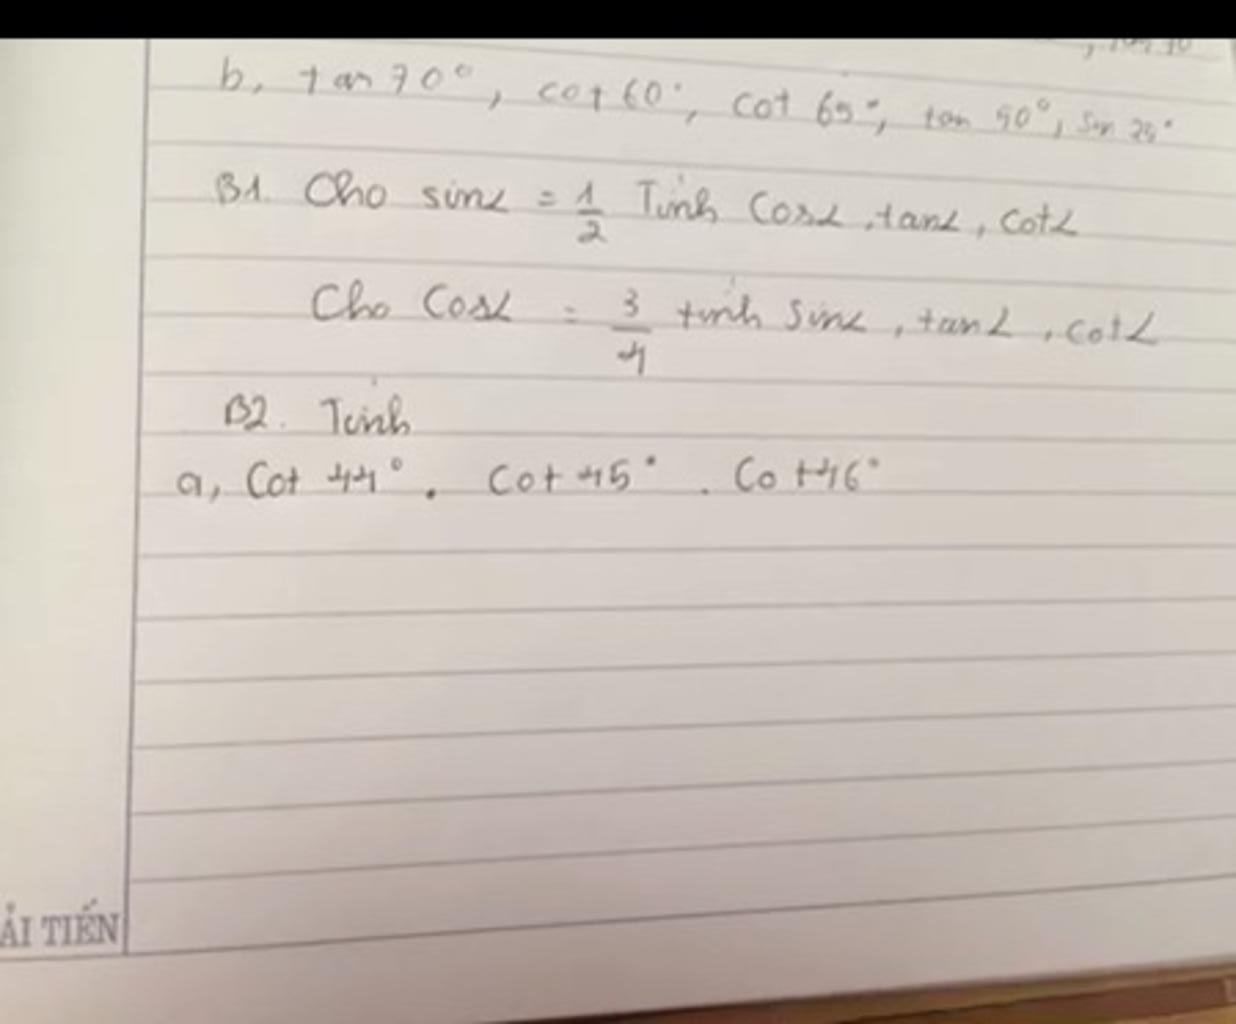 b, tan 70°, cot 60°, cot 65°, tan 50°, sin 25°
B1. Cho sinα = 1/2 Tính Cosα, tanα, cotα
Cho Cosα = 3/4 tính Sinα, tanα, cotα
B2. Tính
a, Cot 44° . Cot 45° . Cot 46°
ẢI TIẾN